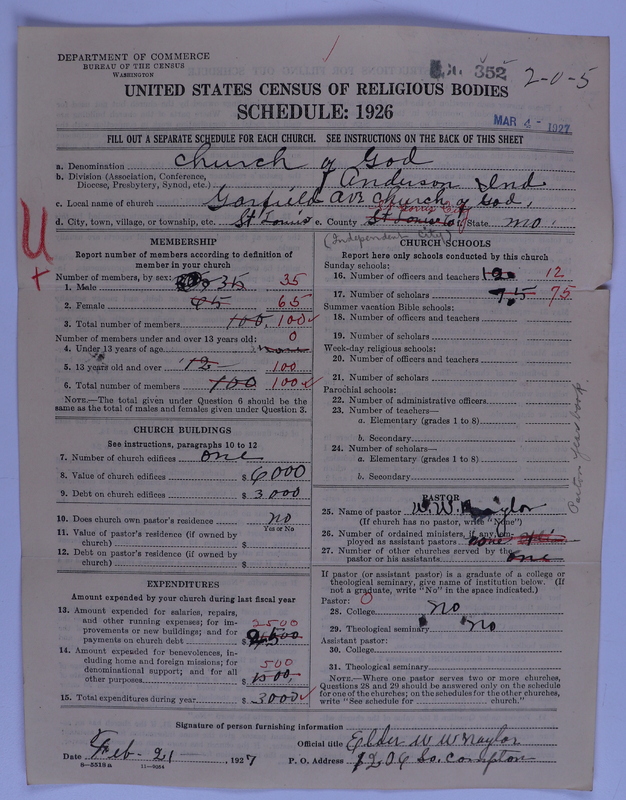 DEPARTMENT OF COMMERCE
BUREAU OF THE CENSUS
WASHINGTON
352
2-0-5
UNITED STATES CENSUS OF RELIGIOUS BODIES
SCHEDULE: 1926
MAR 4 - 1927
FILL OUT A SEPARATE SCHEDULE FOR EACH CHURCH. SEE INSTRUCTIONS ON THE BACK OF THIS SHEET
a. Denomination Church of God
b. Division (Association, Conference, Diocese, Presbytery, Synod, etc.) Anderson Ind
c. Local name of church Garfield Ave Church of God,
d. City, town, village, or township, etc. St Louis e. County St Louis City State Mo.
(Independent City)
U
+
MEMBERSHIP
Report number of members according to definition of
member in your church
Number of members, by sex:
1. Male 35 35
2. Female 65
3. Total number of members 100, 100
Number of members under and over 13 years old:
4. Under 13 years of age none 0
5. 13 years old and over 12 100
6. Total number of members 100 100
NOTE.—The total given under Question 6 should be the
same as the total of males and females given under Question 3.
CHURCH BUILDINGS
See instructions, paragraphs 10 to 12
7. Number of church edifices one
8. Value of church edifices $ 6000
9. Debt on church edifices $ 3000
10. Does church own pastor's residence no
Yes or No
11. Value of pastor's residence (if owned by
church) $
12. Debt on pastor's residence (if owned by
church) $
EXPENDITURES
Amount expended by your church during last fiscal year
13. Amount expended for salaries, repairs,
and other running expenses; for im-
provements or new buildings; and for
payments on church debt $ 2500
14. Amount expended for benevolences, in-
cluding home and foreign missions; for
denominational support; and for all
other purposes $ 500
15. Total expenditures during year $ 3000
CHURCH SCHOOLS
Report here only schools conducted by this church
Sunday schools:
16. Number of officers and teachers 12
17. Number of scholars 75 75
Summer vacation Bible schools:
18. Number of officers and teachers
19. Number of scholars
Week-day religious schools:
20. Number of officers and teachers
21. Number of scholars
Parochial schools:
22. Number of administrative officers
23. Number of teachers—
a. Elementary (grades 1 to 8)
b. Secondary
24. Number of scholars—
a. Elementary (grades 1 to 8)
b. Secondary
PASTOR
25. Name of pastor W. W. Naylor
(If church has no pastor, write "None")
26. Number of ordained ministers, if any, em-
ployed as assistant pastors none
27. Number of other churches served by the
pastor or his assistants one
If pastor (or assistant pastor) is a graduate of a college or
theological seminary, give name of institution below. (If
not a graduate, write "No" in the space indicated.)
Pastor:
28. College No
29. Theological seminary No
Assistant pastor:
30. College
31. Theological seminary
NOTE.—Where one pastor serves two or more churches,
Questions 28 and 29 should be answered only on the schedule
for one of the churches; on the schedules for the other churches,
write "See schedule for ........ church."
Signature of person furnishing information
Official title Elder W W Naylor
Date Feb-21-, 1927 P. O. Address 1206 So. Compton
8-5518a 11-9054